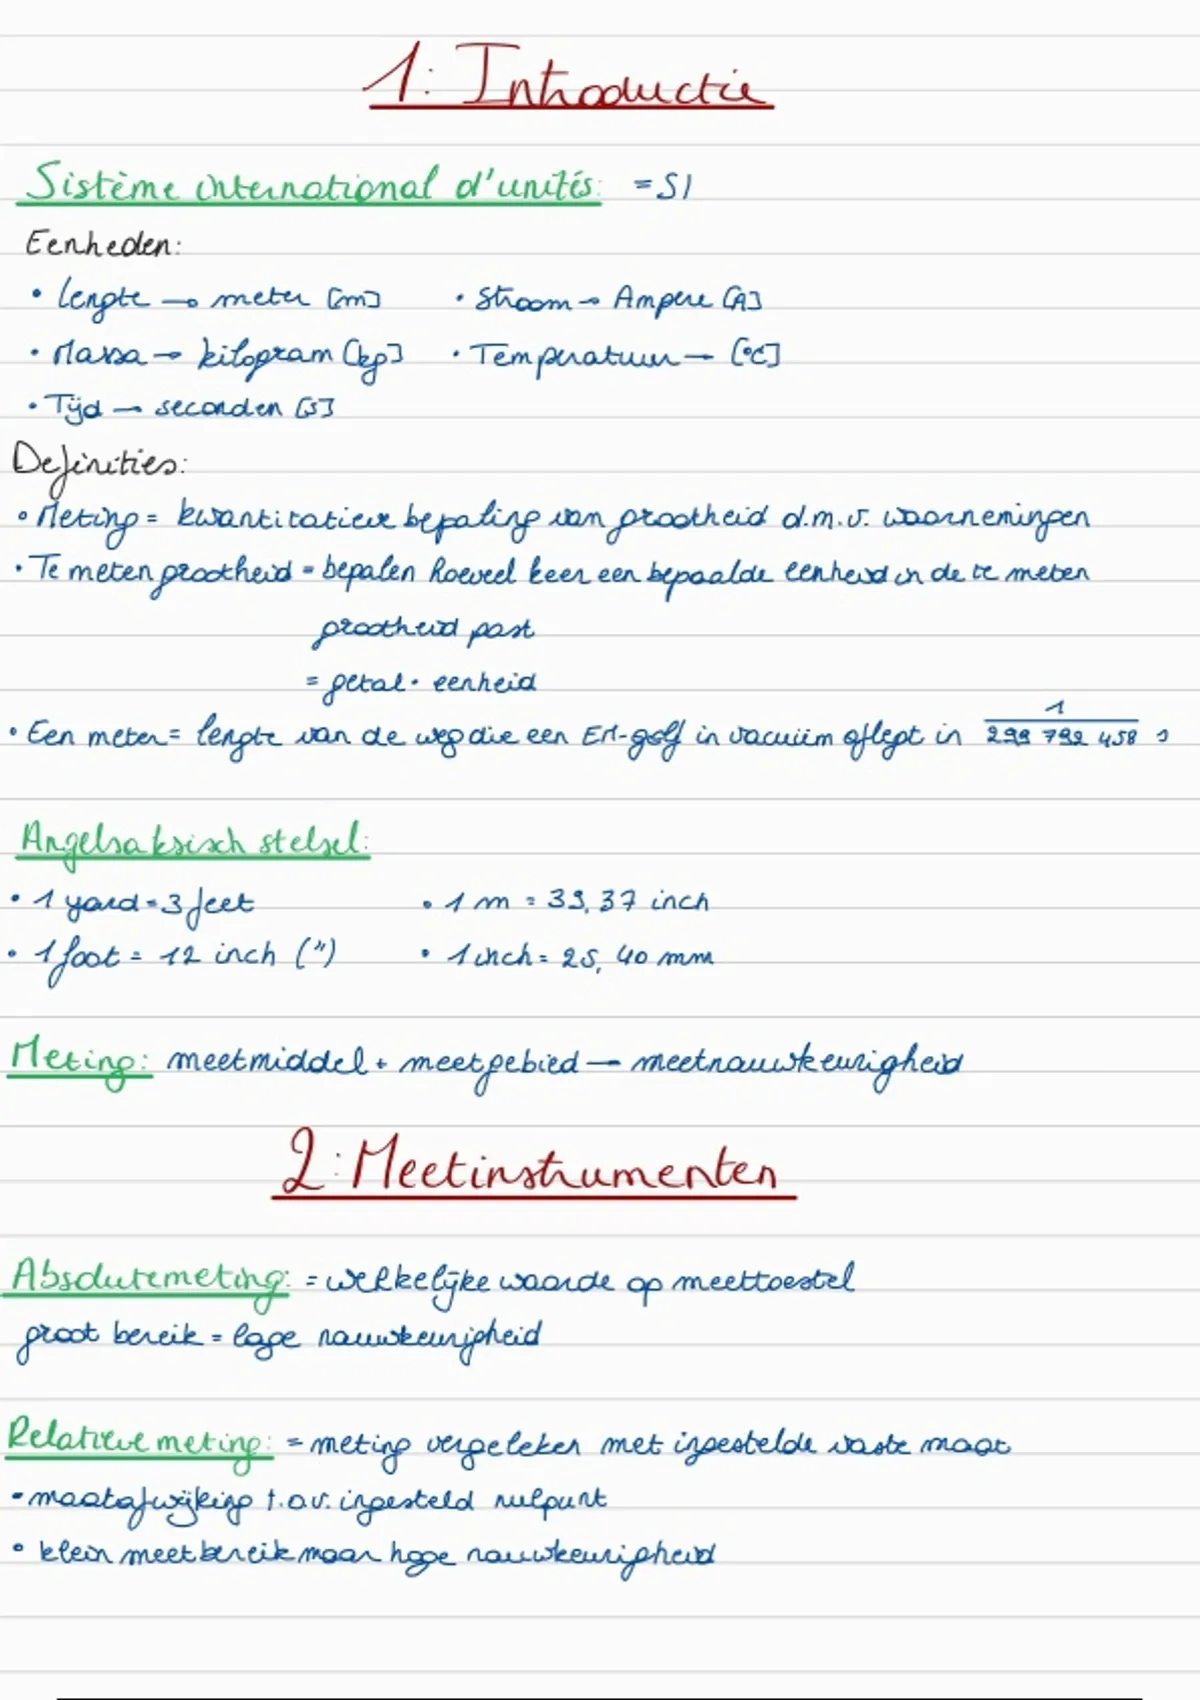 1: Introductie
Sistème international d'unités: = SI
Eenheden:
• lengte → meter [m] • Stroom → Ampere [A]
• Massa → kilogram [kg] • Temperatuur → [°C]
• Tijd → seconden [s]
Definities:
• Meting = kwantitatieve bepaling van grootheid d.m.v. waarnemingen
• Te meten grootheid = bepalen hoeveel keer een bepaalde eenheid in de te meten
grootheid past
= getal · eenheid
• Een meter = lengte van de weg die een EM-golf in vacuüm aflegt in 1/299 792 458 s
Angelsaksisch stelsel:
• 1 yard = 3 feet • 1 m = 39,37 inch
• 1 foot = 12 inch (") • 1 inch = 25,40 mm
Meting: meetmiddel + meetgebied → meetnauwkeurigheid
2: Meetinstrumenten
Absolute meting: = werkelijke waarde op meettoestel
groot bereik = lage nauwkeurigheid
Relatieve meting: = meting vergeleken met ingestelde vaste maat
• maatafwijking t.o.v. ingesteld nulpunt
• klein meetbereik maar hoge nauwkeurigheid